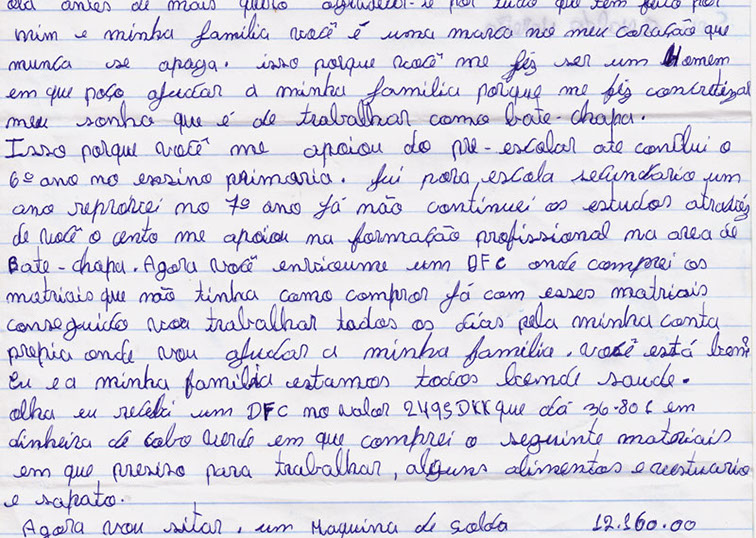 olá antes de mais quero agradecer-te por tudo que tem feito por
mim e minha familia você é uma marca no meu coração que
nunca se apaga. isso porque você me fiz ser um Homem
em que poço ajudar a minha familia porque me fiz concretizar
meu sonho que é de trabalhar como bate-chapa.
Isso porque você me apoiou do pre-escolar ate conclui o
6º ano no ensino primaria. fui para escola secundario um
ano reprovei no 7º ano já não continuei os estudos atravéz
de você o cento me apoiou na formação profissional na area de
Bate-chapa. Agora você envioume um DFC onde comprei os
matriais que não tinha como compror já com esses matriais
conseguido vou trabalhar todos os dias pela minha conta
propia onde vou ajudar a minha familia. você está bem?
Eu e a minha familia estamos todos bem de saude.
olha eu recebi um DFC no valor 2495 DKK que dá 36-80 em
dinheiro de cabo verde em que comprei o seguinte matoriais
em que presiso para trabalhar, alguns alimentos e vestuario
e sapato.
Agora vou sitar. um Maquina de Solda 12.160.00